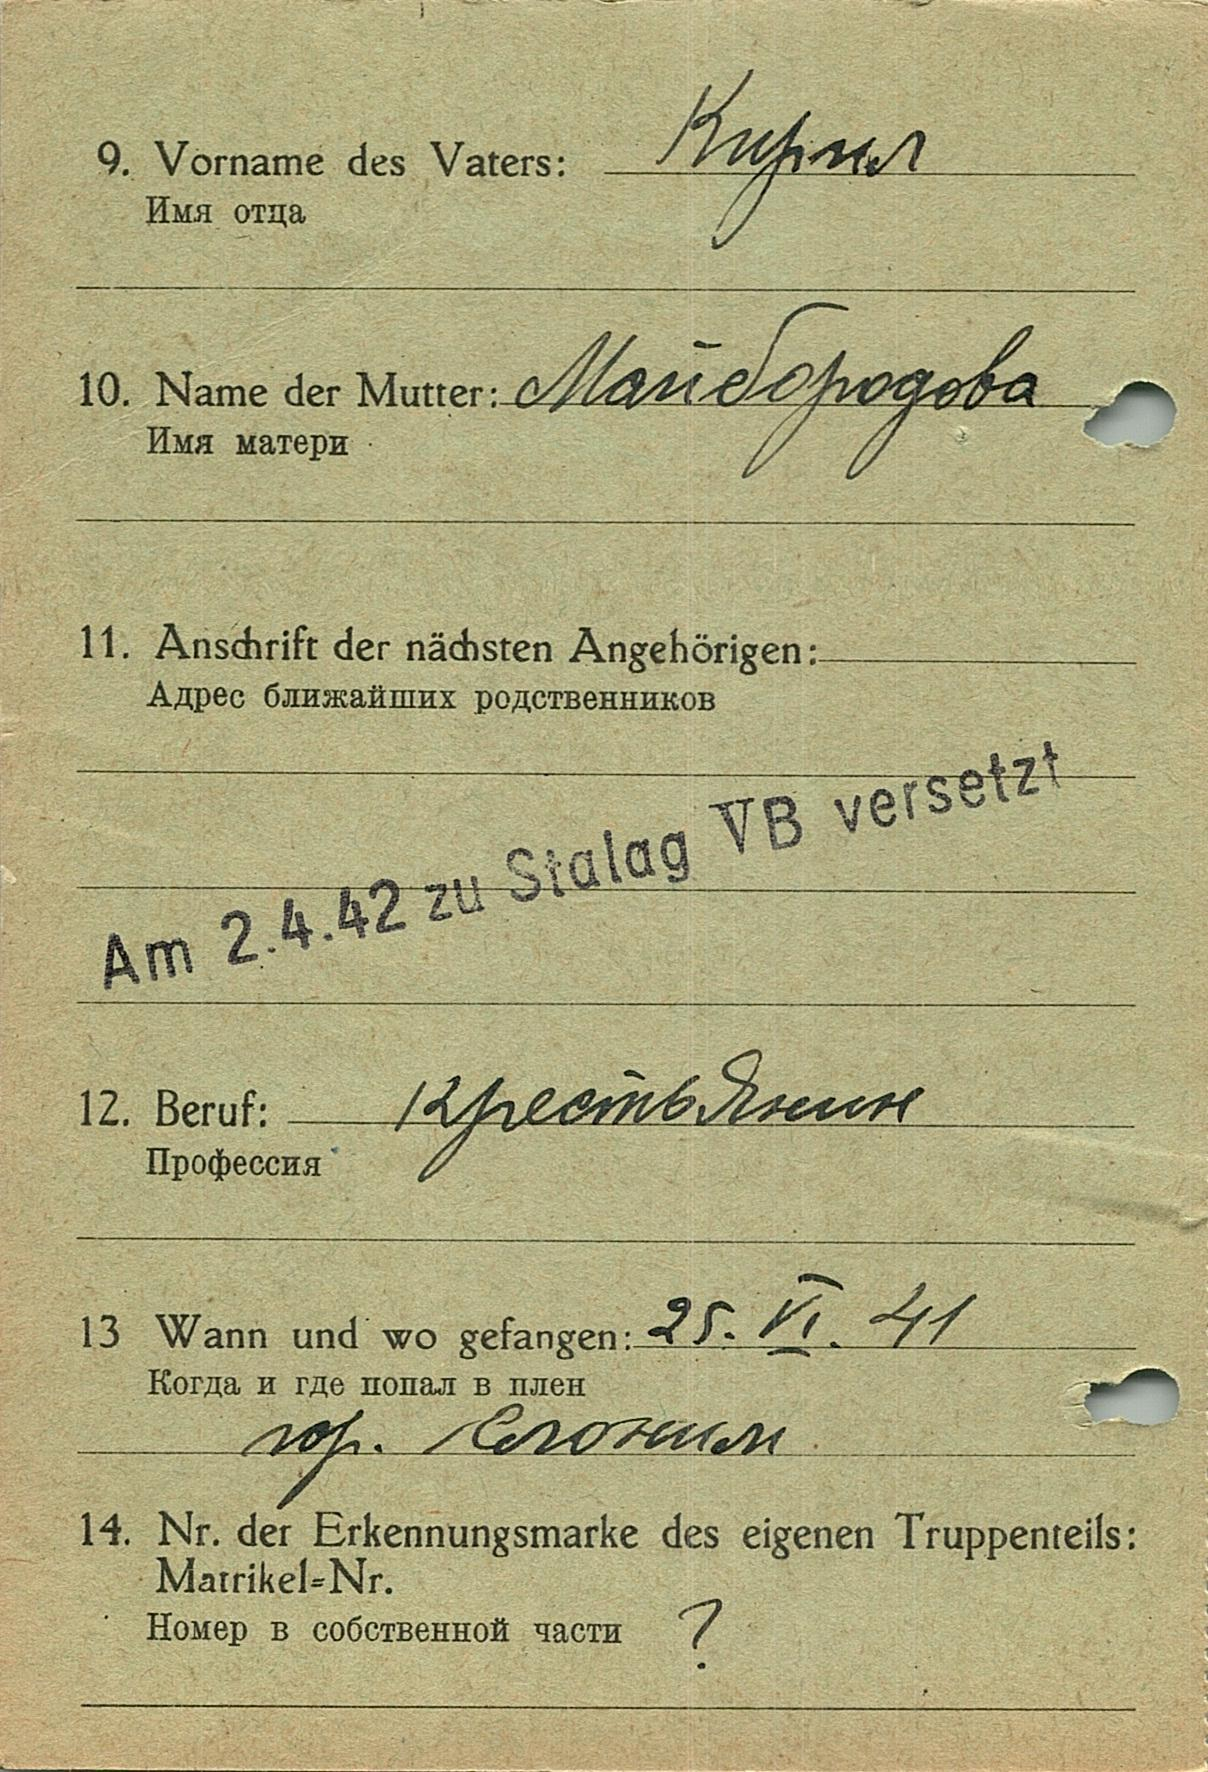 9. Vorname des Vaters: Кирил
Имя отца
10. Name der Mutter: Майбородова
Имя матери
11. Anschrift der nächsten Angehörigen:
Адрес ближайших родственников
Am 2.4.42 zu Stalag VB versetzt
12. Beruf: крестьянин
Профессия
13 Wann und wo gefangen: 25. VI. 41
Когда и где попал в плен
гор. Слоним
14. Nr. der Erkennungsmarke des eigenen Truppenteils:
Matrikel-Nr.
Номер в собственной части ?